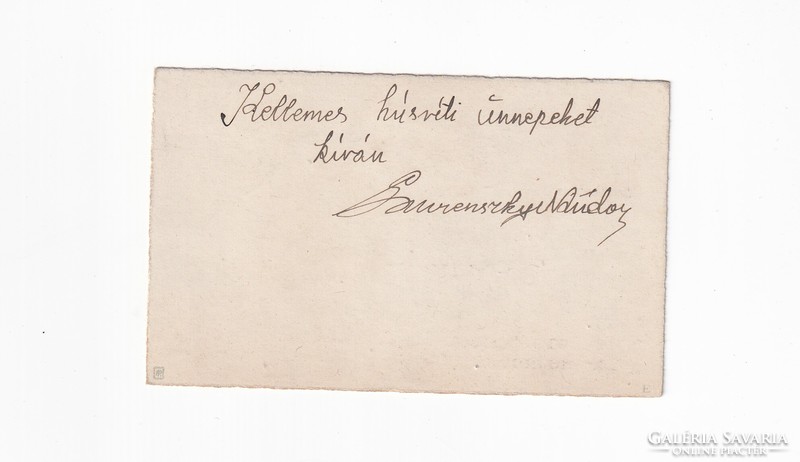 Kellemes húsvéti ünnepeket
kíván
Nándor
E
GALÉRIA SAVARIA
ONLINE PIACTÉR